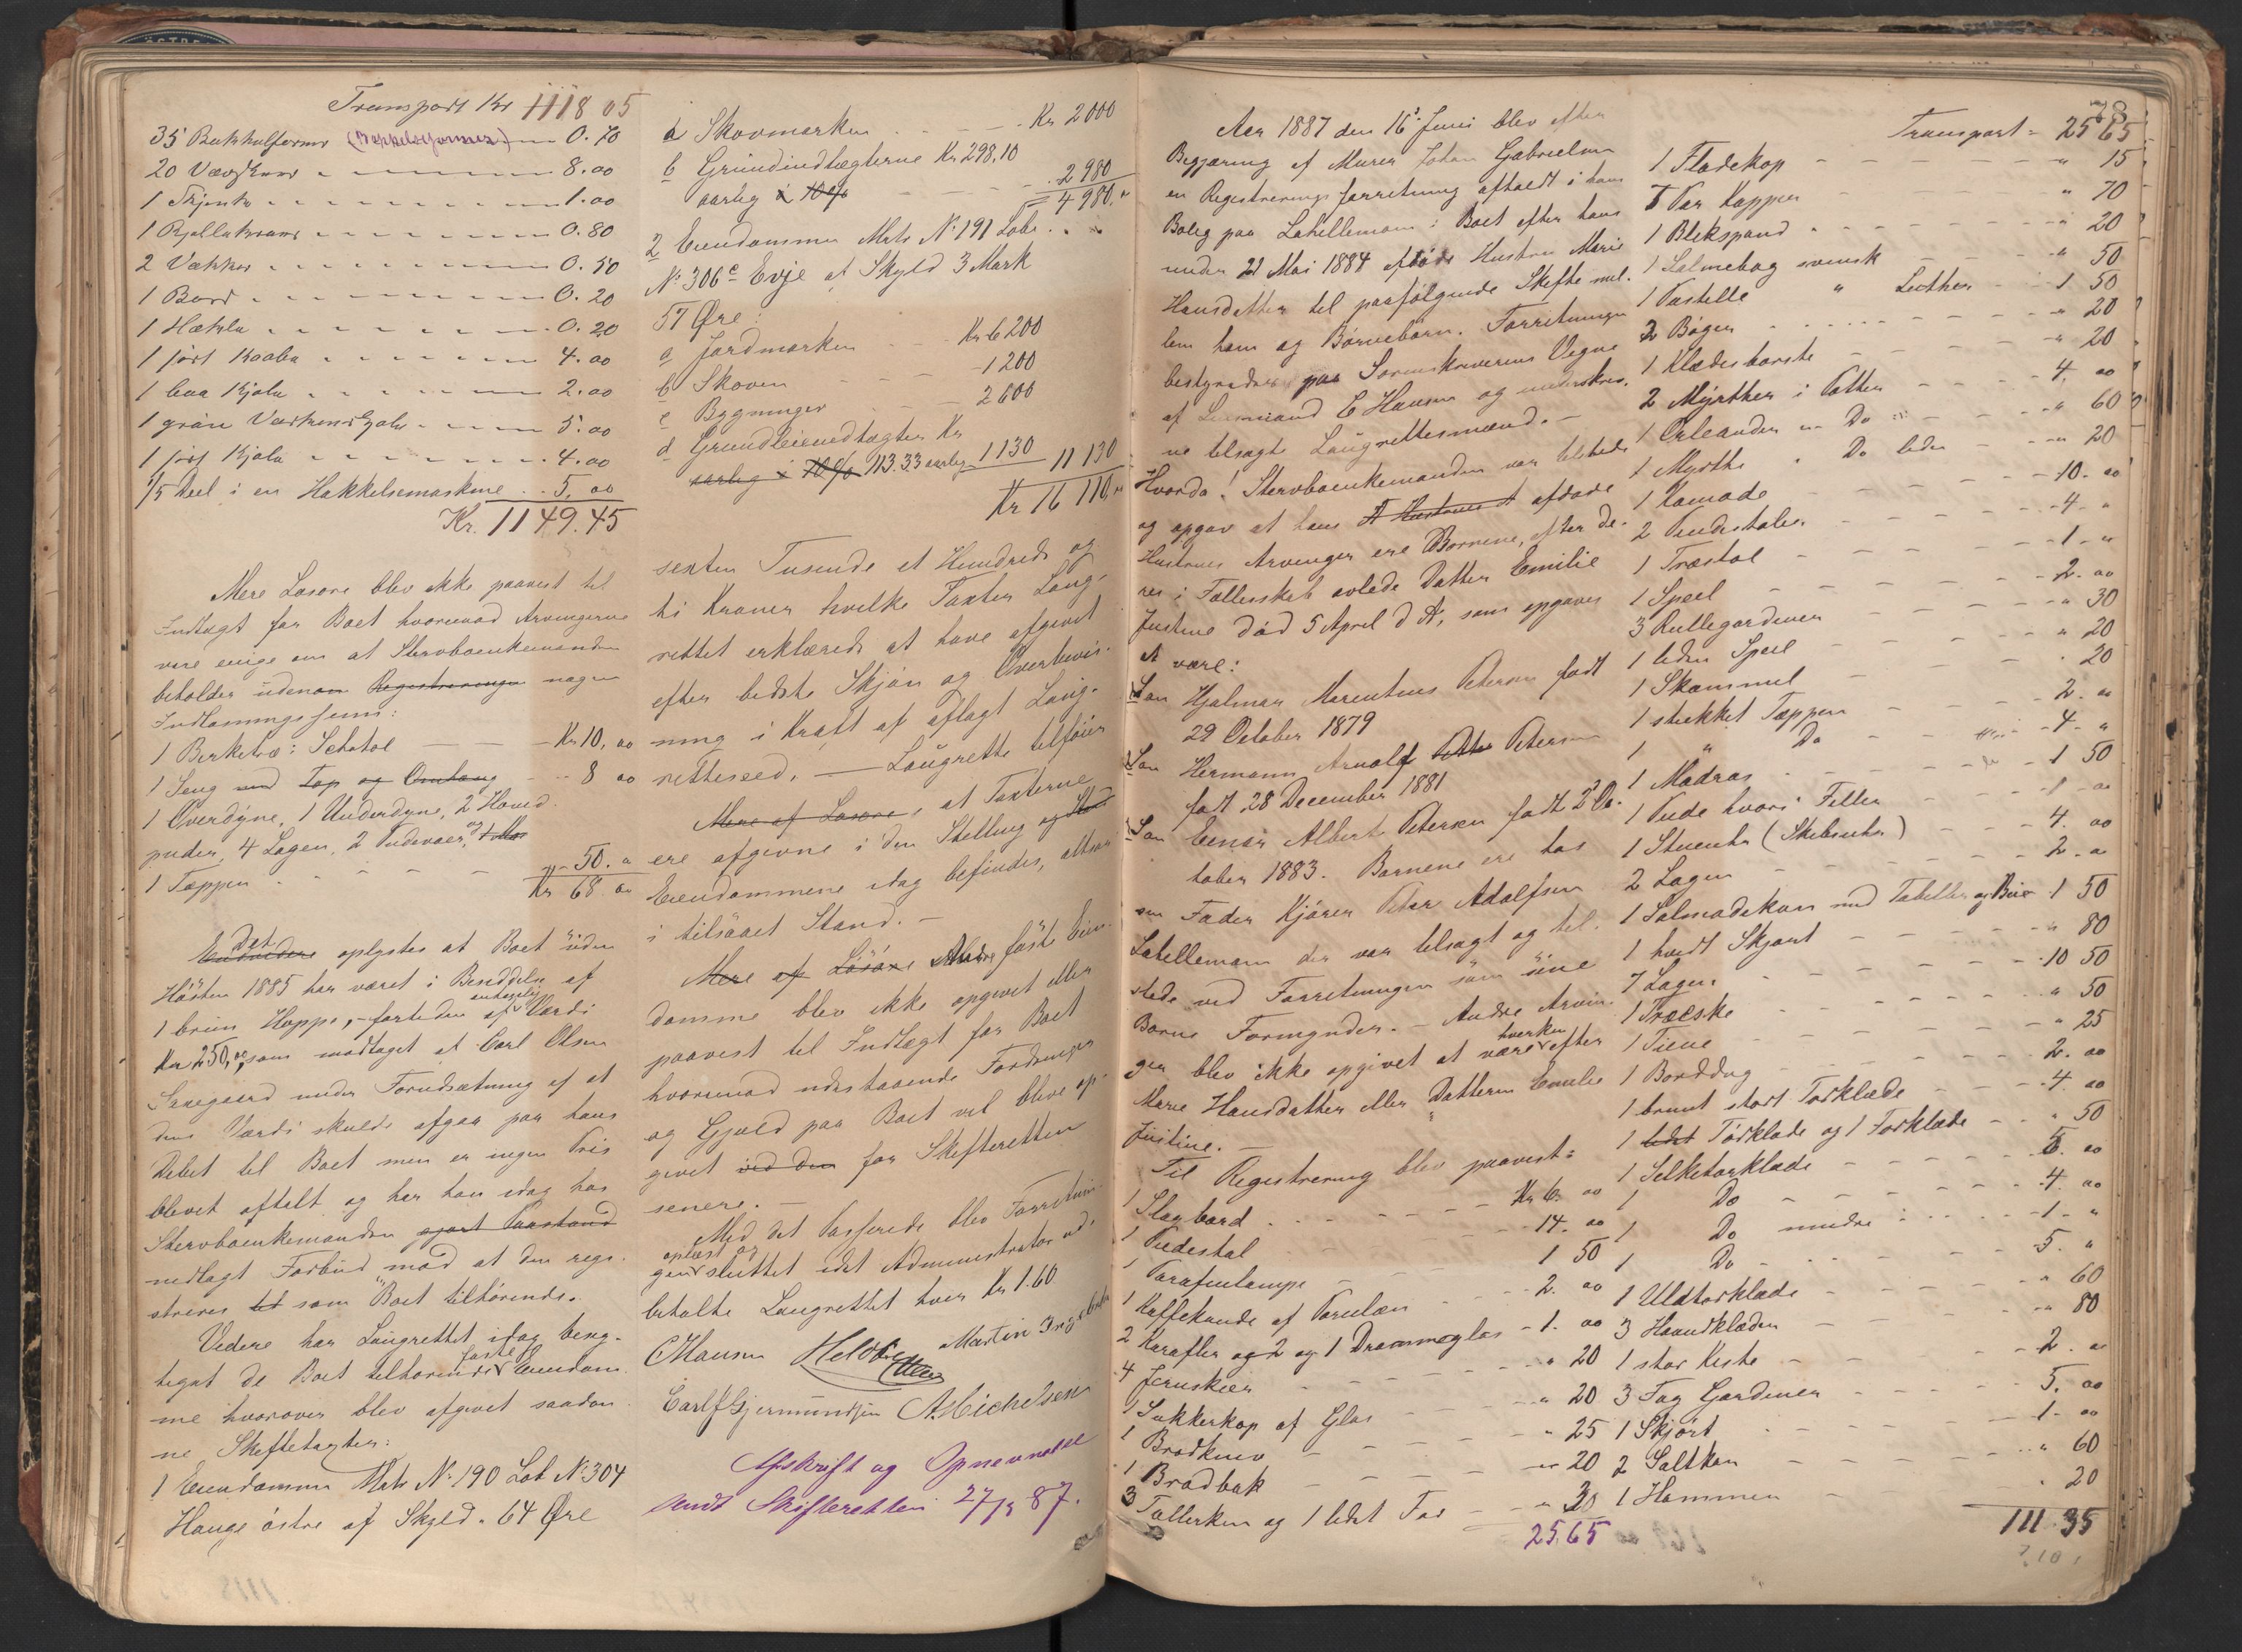 Transport Kr 1118 05
35 Bakkelsformer (Bakkelsformer) 0. 70
20 8. 00
1 1. 00
1 0. 80
2 Vækker 0. 50
1 Bord 0. 20
1 Hækla 0. 20
1 4. 00
1 blaa Kjole 2. 00
1 grøn 5. 00
1 Kjole 4. 00
1/5 Deel i en Hakkelsemaskine 5. 00
Kr. 1149. 45
Mere Løsøre blev ikke paavist til
Indtægt for Boet hvorimod Arvingerne
vare enige om at Sterboenkemanden
beholder udenom Registreringen nogen
Indløsningssum:
1 Birketræ: Schatol Kr 10, 00
1 Seng med Top og Omhæng 8 00
1 Overdyne, 1 Underdyne, 2 Hoved
puder, 4 Lagen, 2 Pudevaer, og
1 Tæppe 50. "
Kr 68 00
Endvidere Det oplystes at Boet siden
Høsten 1885 har været i Besiddelse af
1 brun Hoppe, af Værdi
Kr 250,00, som modtaget af Carl Olsen
under Forudsætning af at
dens Værdi skulde afgaa paa hans
Debet til Boet men er ingen Pris
blevet aftalt og har han idag hos
Sterboenkemanden gjort Paastand
nedlagt Forbud mod at den regi-
streres som Boet tilhørende.
Videre har Laugrettet idag besig-
tiget de Boet tilhørende faste Eiendom-
me hvorover blev afgivet saadan
ne Skiftetaxter:
1 Eiendommen Mats No 190 Løb No 304
Hauge østre af Skyld 64 Øre
a Skovmarken Kr 2000
b Grundindtægterne Kr 298,10
aarlig à 10% 2980
= 4980."
2 Eiendommen Mats No 191 Løbe
No 306c Evje af Skyld 3 Mark
57 Øre:
a Jordmarken Kr 6200
b Skoven 1200
c Bygninger 2600
d Grundleieindtægter Kr
aarlig à 10% 113.33 aarlig 1130 11130
Kr 16 110,00
sexten Tusende et Hundrede og
ti Kroner hvilke Taxter Laug-
rettet erklærede at have afgivet
efter bedste Skjøn og Overbevis-
ning i Kraft af aflagt Laug-
rettesed. — Laugrettet tilføier
Mere af Løsøre, at Taxterne
ere afgivne i den Stelling og Stand
Eiendommene idag befindes, altsaa
i tilsaaet Stand. —
Mere af Løsøre Andre faste Eien-
domme blev ikke opgivet eller
paavist til Indtægt for Boet
hvorimod udestaaende Fordringer
og Gjæld paa Boet vil blive op-
givet ved den for Skifteretten
senere. —
Med det Passerede blev Forretnin-
gen oplæst og sluttet idet Administrator ud-
betalte Laugrettet hver Kr 1.60
C Hansen Martin
Carl J Gjermundsen A. Michelsen
Afskrift og Opnevnelse
sendt Skifteretten 27/3 87.
78
Aar 1887 den 16de Juni blev efter
Begjæring af Murer Johan Gabrielsen
en Registreringsforretning afholdt i hans
Bolig paa Lahellemoen i Boet efter hans
under 21 Mai 1884 afdøde Hustru Marie
Hansdatter til paafølgende Skifte mel-
lem ham og Børnebørn. Forretningen
bestyredes paa Sorenskriverens Vegne
af Lensmand C Hansen og underskrev-
ne tilsagte Laugrettesmænd. —
Hvorda! Sterboenkemanden var tilstede
og opgav at hans Hustrues afdøde
Hustrues Arvinger ere Børnene, efter de-
res i Fællesskab avlede Datter Emilie
Justine død 5 April d A, som opgaves
at være:
Søn Hjalmar Marentius Petersen født
29 October 1879
Søn Hermann Arnolf Petersen
født 28 December 1881
Søn Einar Albert Petersen født 2 Oc-
tober 1883. Børnene ere hos
sin Fader Kjører Peter Adolfsen
Lahellemoen der var tilsagt og til-
stede ved Forretningen som sine
Børns Formynder. — Andre Arvin-
ger blev ikke opgivet at være hverken efter
Marie Hansdatter eller Datteren Emilie
Justine. —
Til Registrering blev paavist:
1 Slagbord Kr 6. 00
1 Pidestal 14. 00
1 Parafinlampe 1 50
1 Kaffekande af Porcelæn 2. 00
2 Karafler og 2 og 1 Dramme glas 1. 00
4 " 20
1 Sukkerkop af Glas " 20
1 Brødkniv " 25
1 Brødbak " 20
3 Tallerken og 1 lidet Fad " 30
25,65
Transport 25 65
1 Flødekop " 15
7 Par Kopper " 70
1 Blikspand " 20
1 Salmebog svensk " 50
1 Postille " Luther 1 50
2 Bøger " 20
1 Klædesbørste " 20
2 Myrther i Potter 4, 00
1 Oleander Do " 60
1 Myrthe Do liden " 20
1 Komode 10. 00
2 Pindestoler 4. "
1 Træstol 1. "
1 Speil 2. 00
3 Rullegardiner " 30
1 liden Speil " 20
1 Skammel " 20
1 strikket Tæppe 2. 00
1 " Do 4. "
1 Madras 1 50
1 Pude hvori Filler 1. 00
1 Stueuhr (Skibsuhr) 4. 00
2 Lagen 2. "
1 Salmodikon med Tabeller og Bue 1 50
1 hvidt Skjørt " 80
7 Lagen 10 50
1 Træeske " 50
1 Tiene " 25
1 Borddug 2. 00
1 brunt stort Tørklæde 4. 00
1 lidet Tørklæde og 1 Forklæde " 50
1 Silketørklæde 5. 00
1 Do 4. 00
1 Do mindre 1. "
1 Do 5. "
1 Uldtørklæde " 60
3 Haandklæder " 80
1 stor Kiste 2. 00
3 Fag Gardiner 5. 00
1 Skjørt 1. 00
2 Saltkar " 60
1 Hammer " 20
111.35